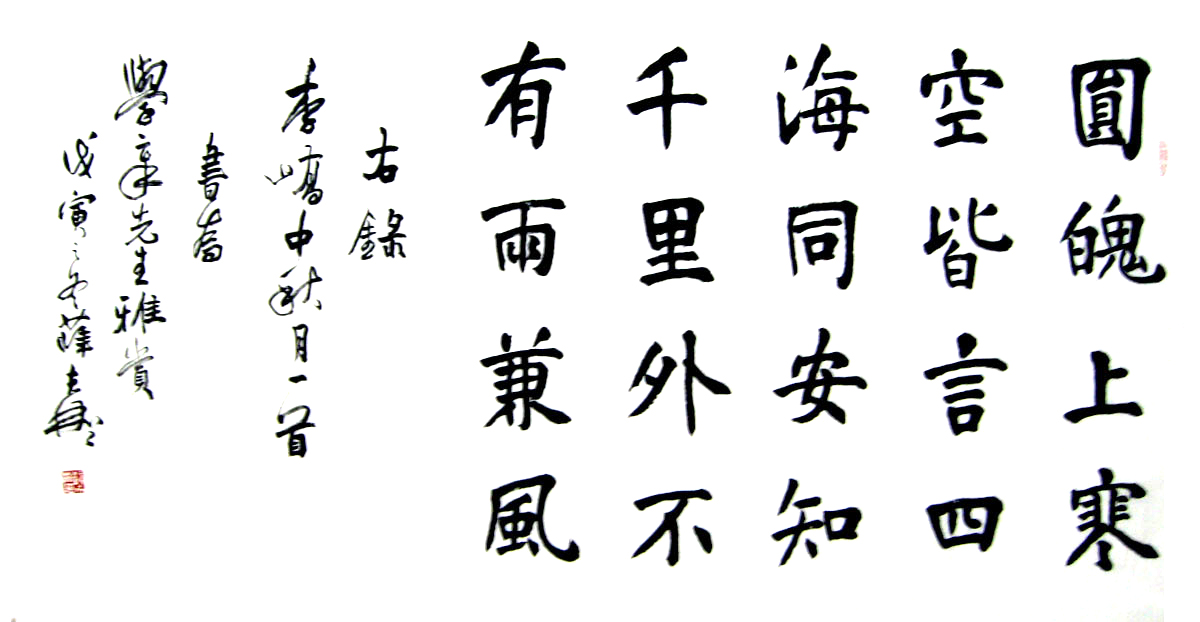 圓魄上寒
空皆言四
海同安知
千里外不
有雨兼風
右錄
李嶠中秋月一首
書
學章先生雅賞
戊寅之冬薛夫彬